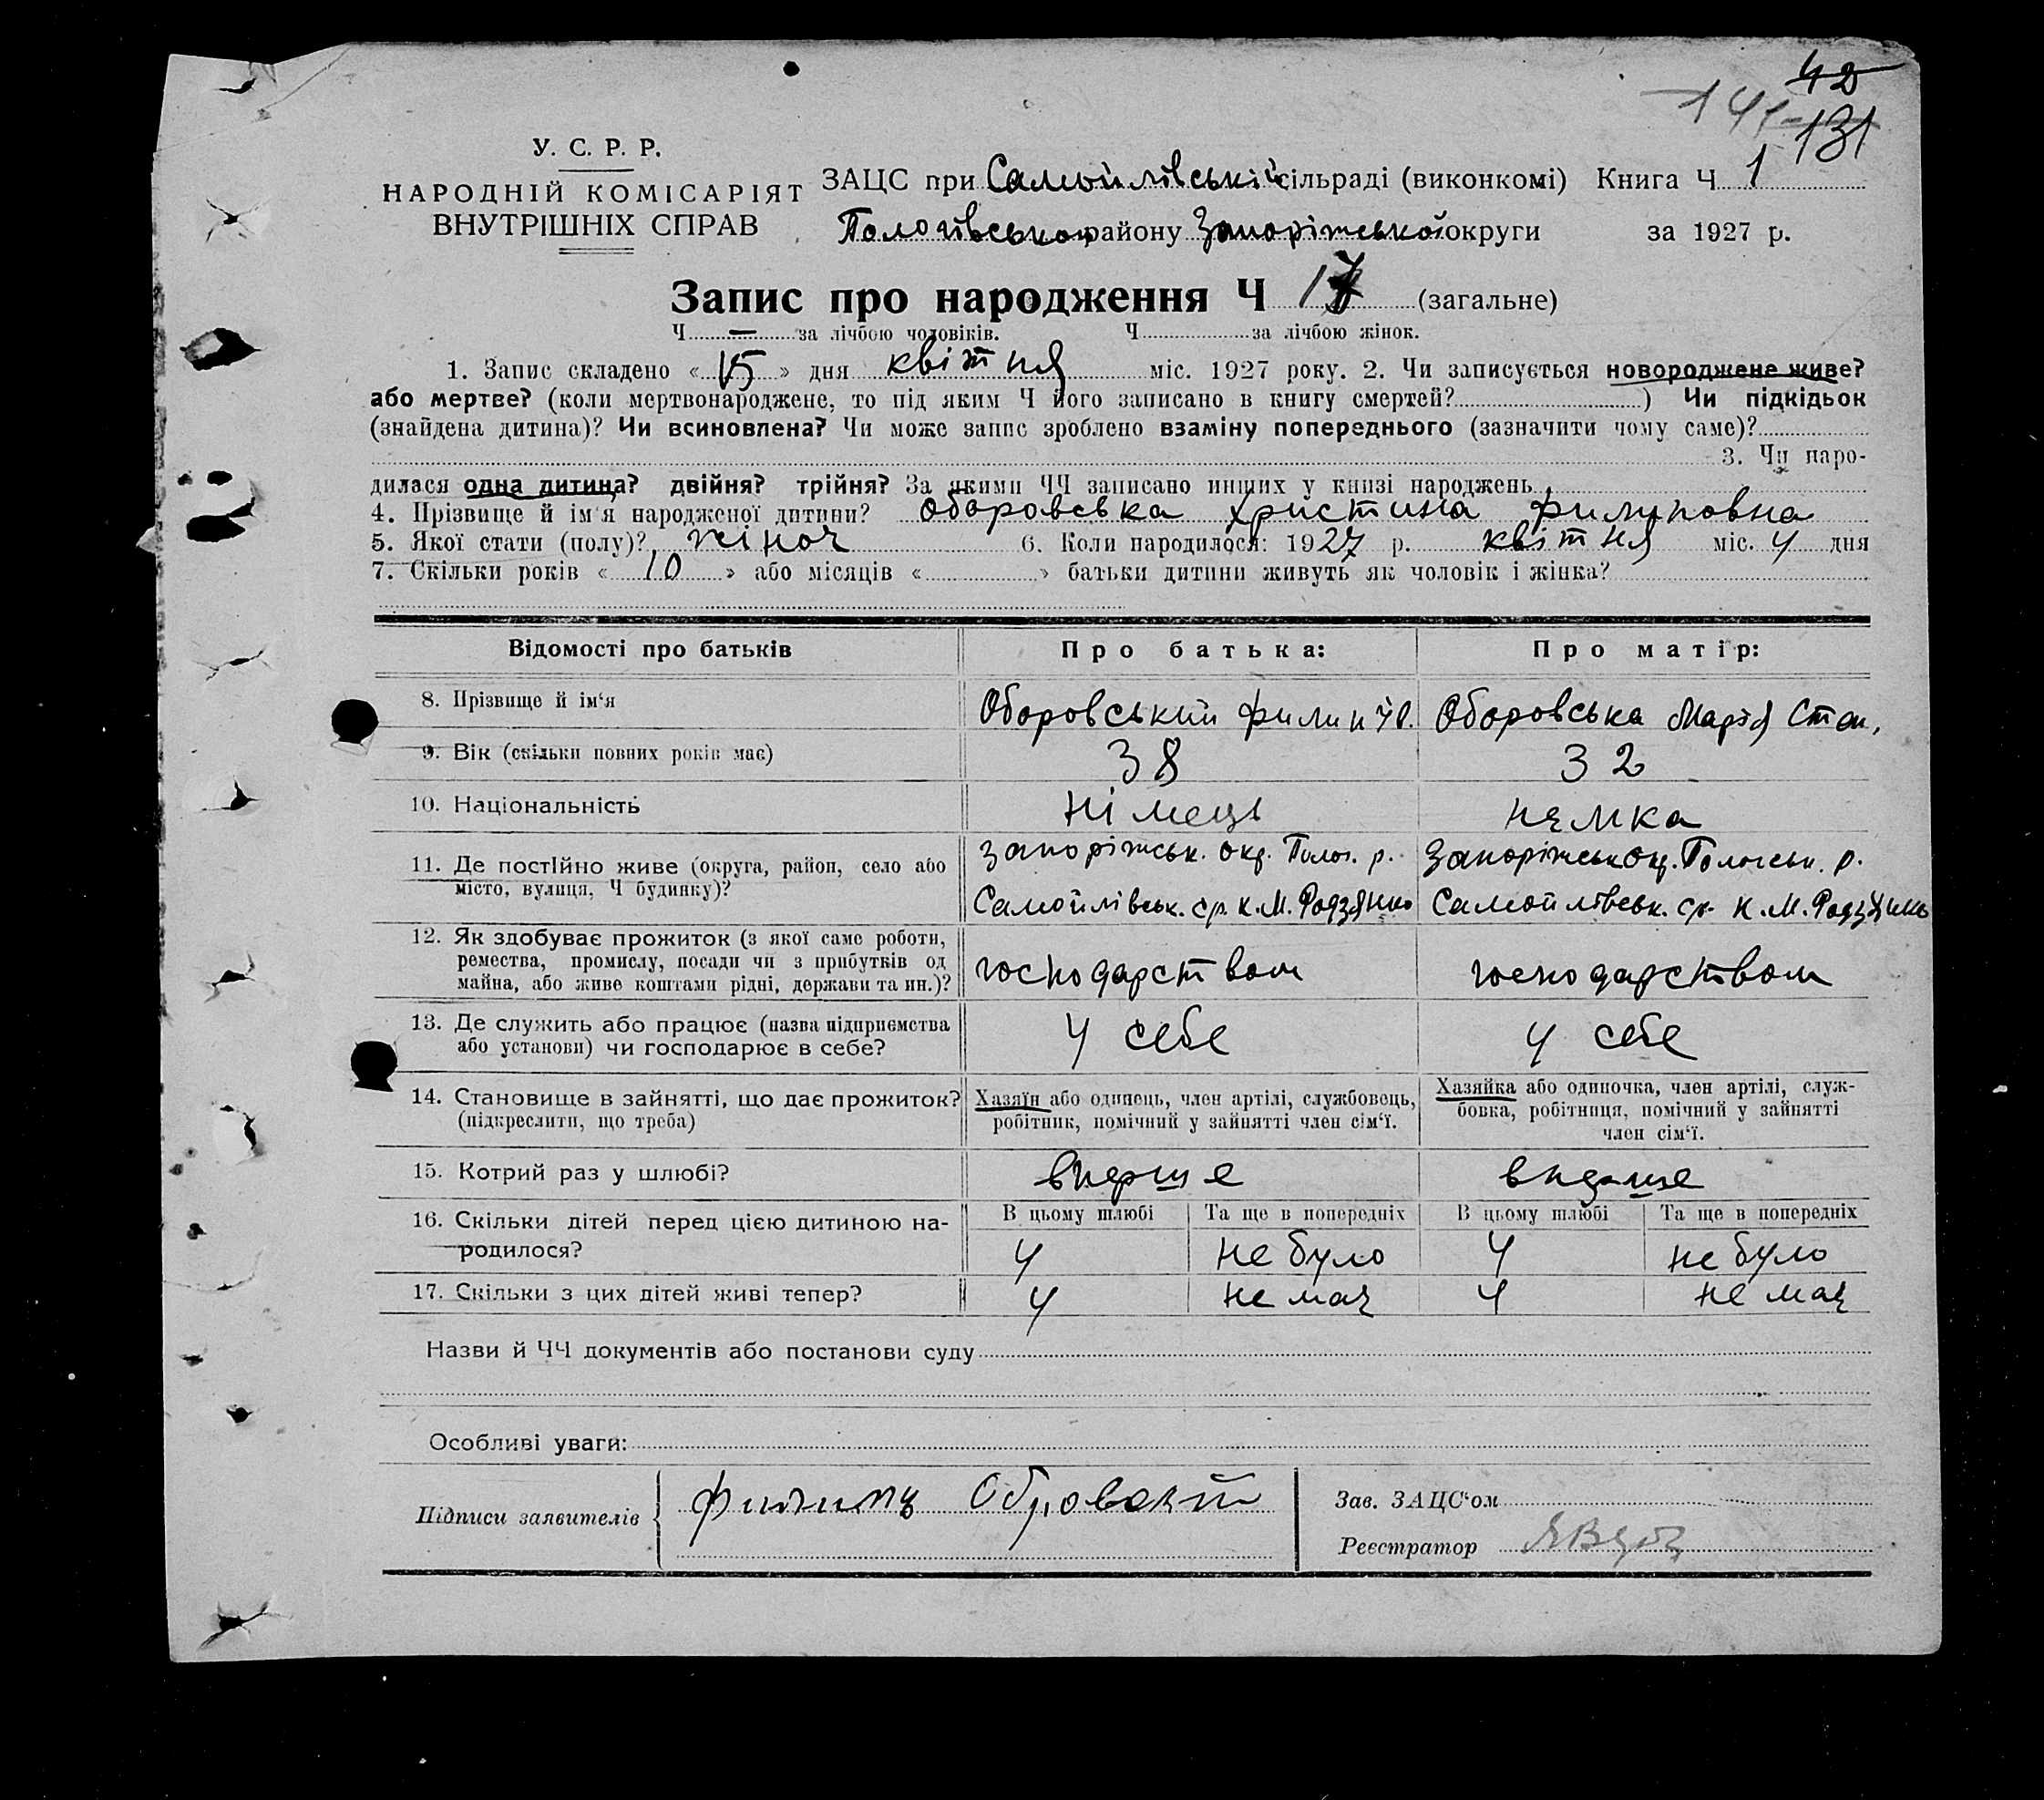 42
141
131
У. С. Р. Р.
НАРОДНІЙ КОМІСАРІЯТ
ВНУТРІШНІХ СПРАВ
ЗАЦС при Самойлівській сільраді (виконкомі) Книга Ч 1
Пологівського району Запоріжської округи за 1927 р.
Запис про народження Ч 17 (загальне)
Ч — за лічбою чоловіків. Ч за лічбою жінок.
1. Запис складено « 15 » дня квітня міс. 1927 року. 2. Чи записується новороджене живе?
або мертве? (коли мертвонароджене, то під яким Ч його записано в книгу смертей? ) Чи підкідьок
(знайдена дитина)? Чи всиновлена? Чи може запис зроблено взаміну попереднього (зазначити чому саме)?
3. Чи наро-
дилася одна дитина? двійня? трійня? За якими ЧЧ записано инших у книзі народжень
4. Прізвище й ім'я народженої дитини? Оборовська Христина Филиповна
5. Якої стати (полу)? жіноч 6. Коли народилося: 1927 р. квітня міс. 4 дня
7. Скільки років « 10 » або місяців « » батьки дитини живуть як чоловік і жінка?
Відомості про батьків Про батька: Про матір:
8. Прізвище й ім'я Оборовський Филип Оборовська Марія Степ.
9. Вік (скільки повних років має) 38 32
10. Національність німець немка
11. Де постійно живе (округа, район, село або
місто, вулиця, Ч будинку)?
Запоріжськ. окр. Полог. р. Запоріжськ окр. Пологськ. р.
Самойлівськ. ср. к. М. Родзянко Самойлівськ. ср. к. М. Родзянко
12. Як здобуває прожиток (з якої саме роботи,
ремества, промислу, посади чи з прибутків од
майна, або живе коштами рідні, держави та ин.)?
господарством господарством
13. Де служить або працює (назва підприємства
або установи) чи господарює в себе?
у себе у себе
14. Становище в зайнятті, що дає прожиток?
(підкреслити, що треба)
Хазяїн або одинець, член артілі, службовець,
робітник, помічний у зайнятті член сім'ї.
Хазяйка або одиночка, член артілі, служ-
бовка, робітниця, помічний у зайнятті
член сім'ї.
15. Котрий раз у шлюбі? вперше вперше
16. Скільки дітей перед цією дитиною на-
родилося?
В цьому шлюбі Та ще в попередніх В цьому шлюбі Та ще в попередніх
4 не було 4 не було
17. Скільки з цих дітей живі тепер? 4 не має 4 не має
Назви й ЧЧ документів або постанови суду
Особливі уваги:
Підписи заявителів Филипъ
Зав. ЗАЦС'ом
Реєстратор